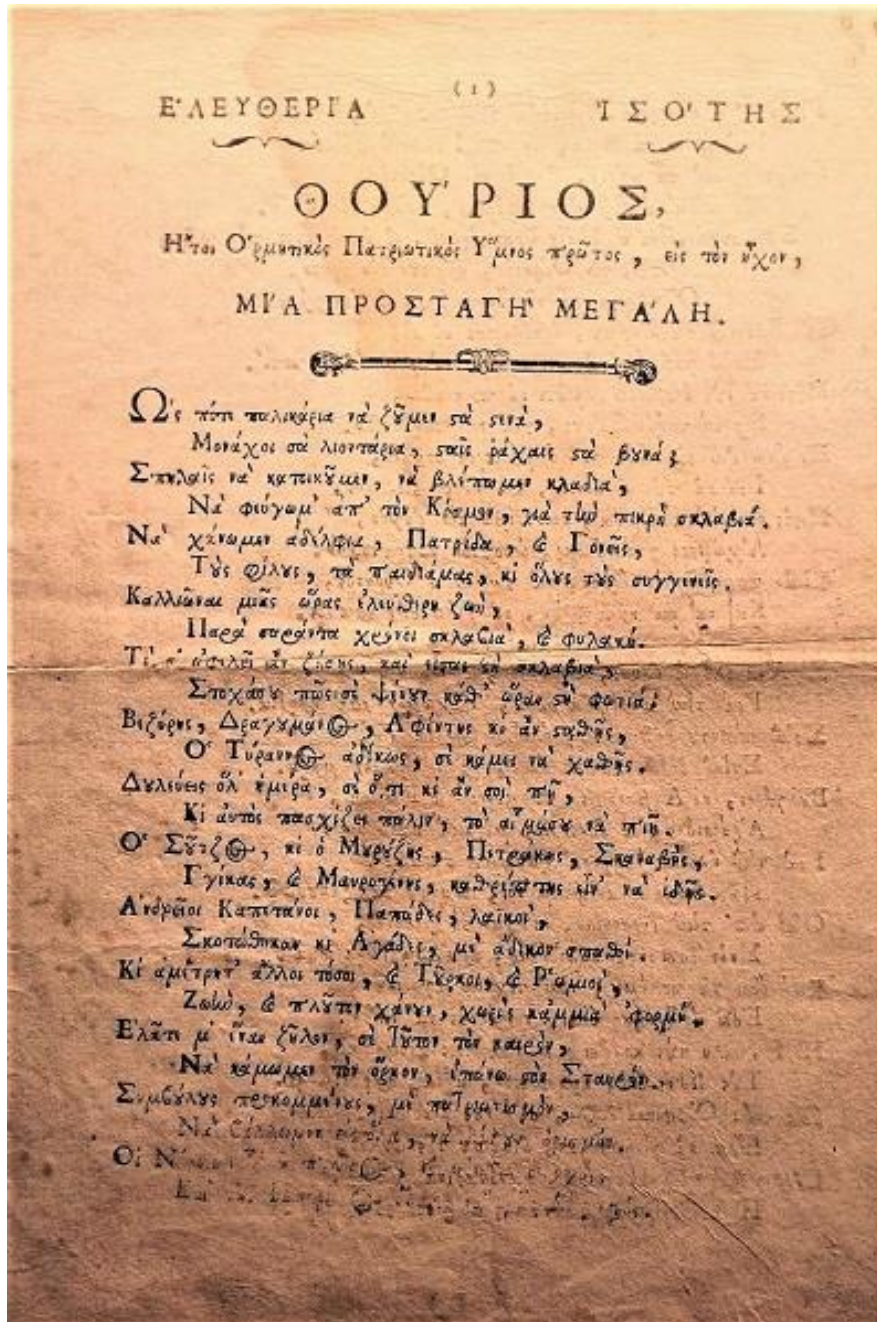 (1)
Ε᾿ΛΕΥΘΕΡΙ´Α Ἰ ΣΟ´ΤΗΣ
ΘΟΥ´ΡΙΟΣ,
Η῎τοι Ο῾ρμητικὸς Πατριωτικὸς Υ῞μνος πρῶτος, εἰς τὸν ἦχον,
ΜΙ´Α ΠΡΟΣΤΑΓΗ` ΜΕΓΑ´ΛΗ.
Ω῾ς πότε παλικάρια νὰ ζȣ͂μεν ϛὰ ϛενὰ,
Μονάχοι σὰ λιοντάρια, ϛαῖς ῥάχαις ϛὰ βȣνά;
Σπηλαῖς νὰ κατοικȣ͂μεν, νὰ βλέπωμεν κλαδιὰ,
Νὰ φεύγωμ' ἀπ' τὸν Κόσμον, γιὰ τὴν πικρὴ σκλαβιά.
Νὰ χάνωμεν ἀδέλφια, Πατρίδα, ϗ Γονεῖς,
Τȣ̀ς φίλȣς, τὰ παιδιάμας, κι ὅλȣς τȣ̀ς συγγενεῖς.
Καλλιῶναι μιᾶς ὥρας ἐλεύθερη ζωὴ,
Παρὰ σαράντα χρόνοι σκλαβιὰ, ϗ φυλακή.
Τί σ' ὠφελεῖ ἂν ζήσῃς, καὶ εἶσαι ϛὴ σκλαβιὰ,
Στοχάσȣ πῶς σὲ ψένȣν καθ' ὥραν ϛὴ φωτιά;
Βεζύρης, Δραγȣμάνος, Α᾿φέντης κι ἂν ϛαθῇς,
Ο῾ Τύραννος ἀδίκως, σὲ κάμει νὰ χαθῇς.
Δȣλεύεις ὅλ' ἡμέρα, σὲ ὅ,τι κι ἂν σοὶ πῇ,
Κι αὐτὸς πασχίζει πάλιν, τὸ αἷμάσȣ νὰ πιῇ.
Ο῾ Σȣ͂τζος, κι ὁ Μȣρȣ́ζης, Πετράκης, Σκαναβῆς,
Γγίκας, ϗ Μαυρογένης, καθρέπτης εἶν' νὰ ἰδῇς.
Α᾿νδρεῖοι Καπετάνοι, Παπάδες, λαϊκοὶ,
Σκοτώθηκαν κι Α᾿γάδες, μὲ ἄδικον σπαθί.
Κι ἀμέτρητ' ἄλλοι τόσοι, ϗ Τȣ͂ρκοι, ϗ Ρ῾ωμιοὶ,
Ζωὴν, ϗ πλȣ͂τον χάνȣν, χωρὶς κἀμμιὰ 'φορμή.
Ε᾿λᾶτε μ' ἕναν ζῆλον, σὲ τȣ͂τον τὸν καιρὸν,
Νὰ κάμωμεν τὸν ὅρκον, ἐπάνω ϛὸν Σταυρόν.
Συμβȣ́λȣς προκομμένȣς, μὲ πατριωτισμὸν,
Νὰ βάλλωμεν εἰς ὅλα, νὰ δίδȣν ὁρισμόν.
Οἱ